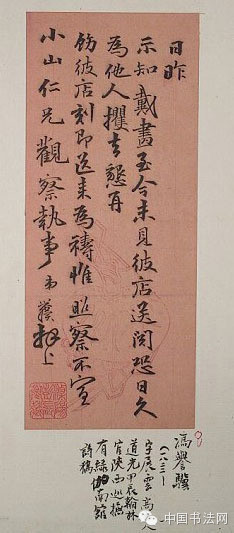 日昨
示知戴畫至今未見彼店送閱恐日久
為他人攫去懇再
飭彼店刻即送來為禱惟照察不宣
小山仁兄觀察執事 弟 拜上
馮譽驥
(一八三一
字展雲高
道光甲辰翰林
官陝西巡撫
有綠伽南館
詩稿
中国书法网